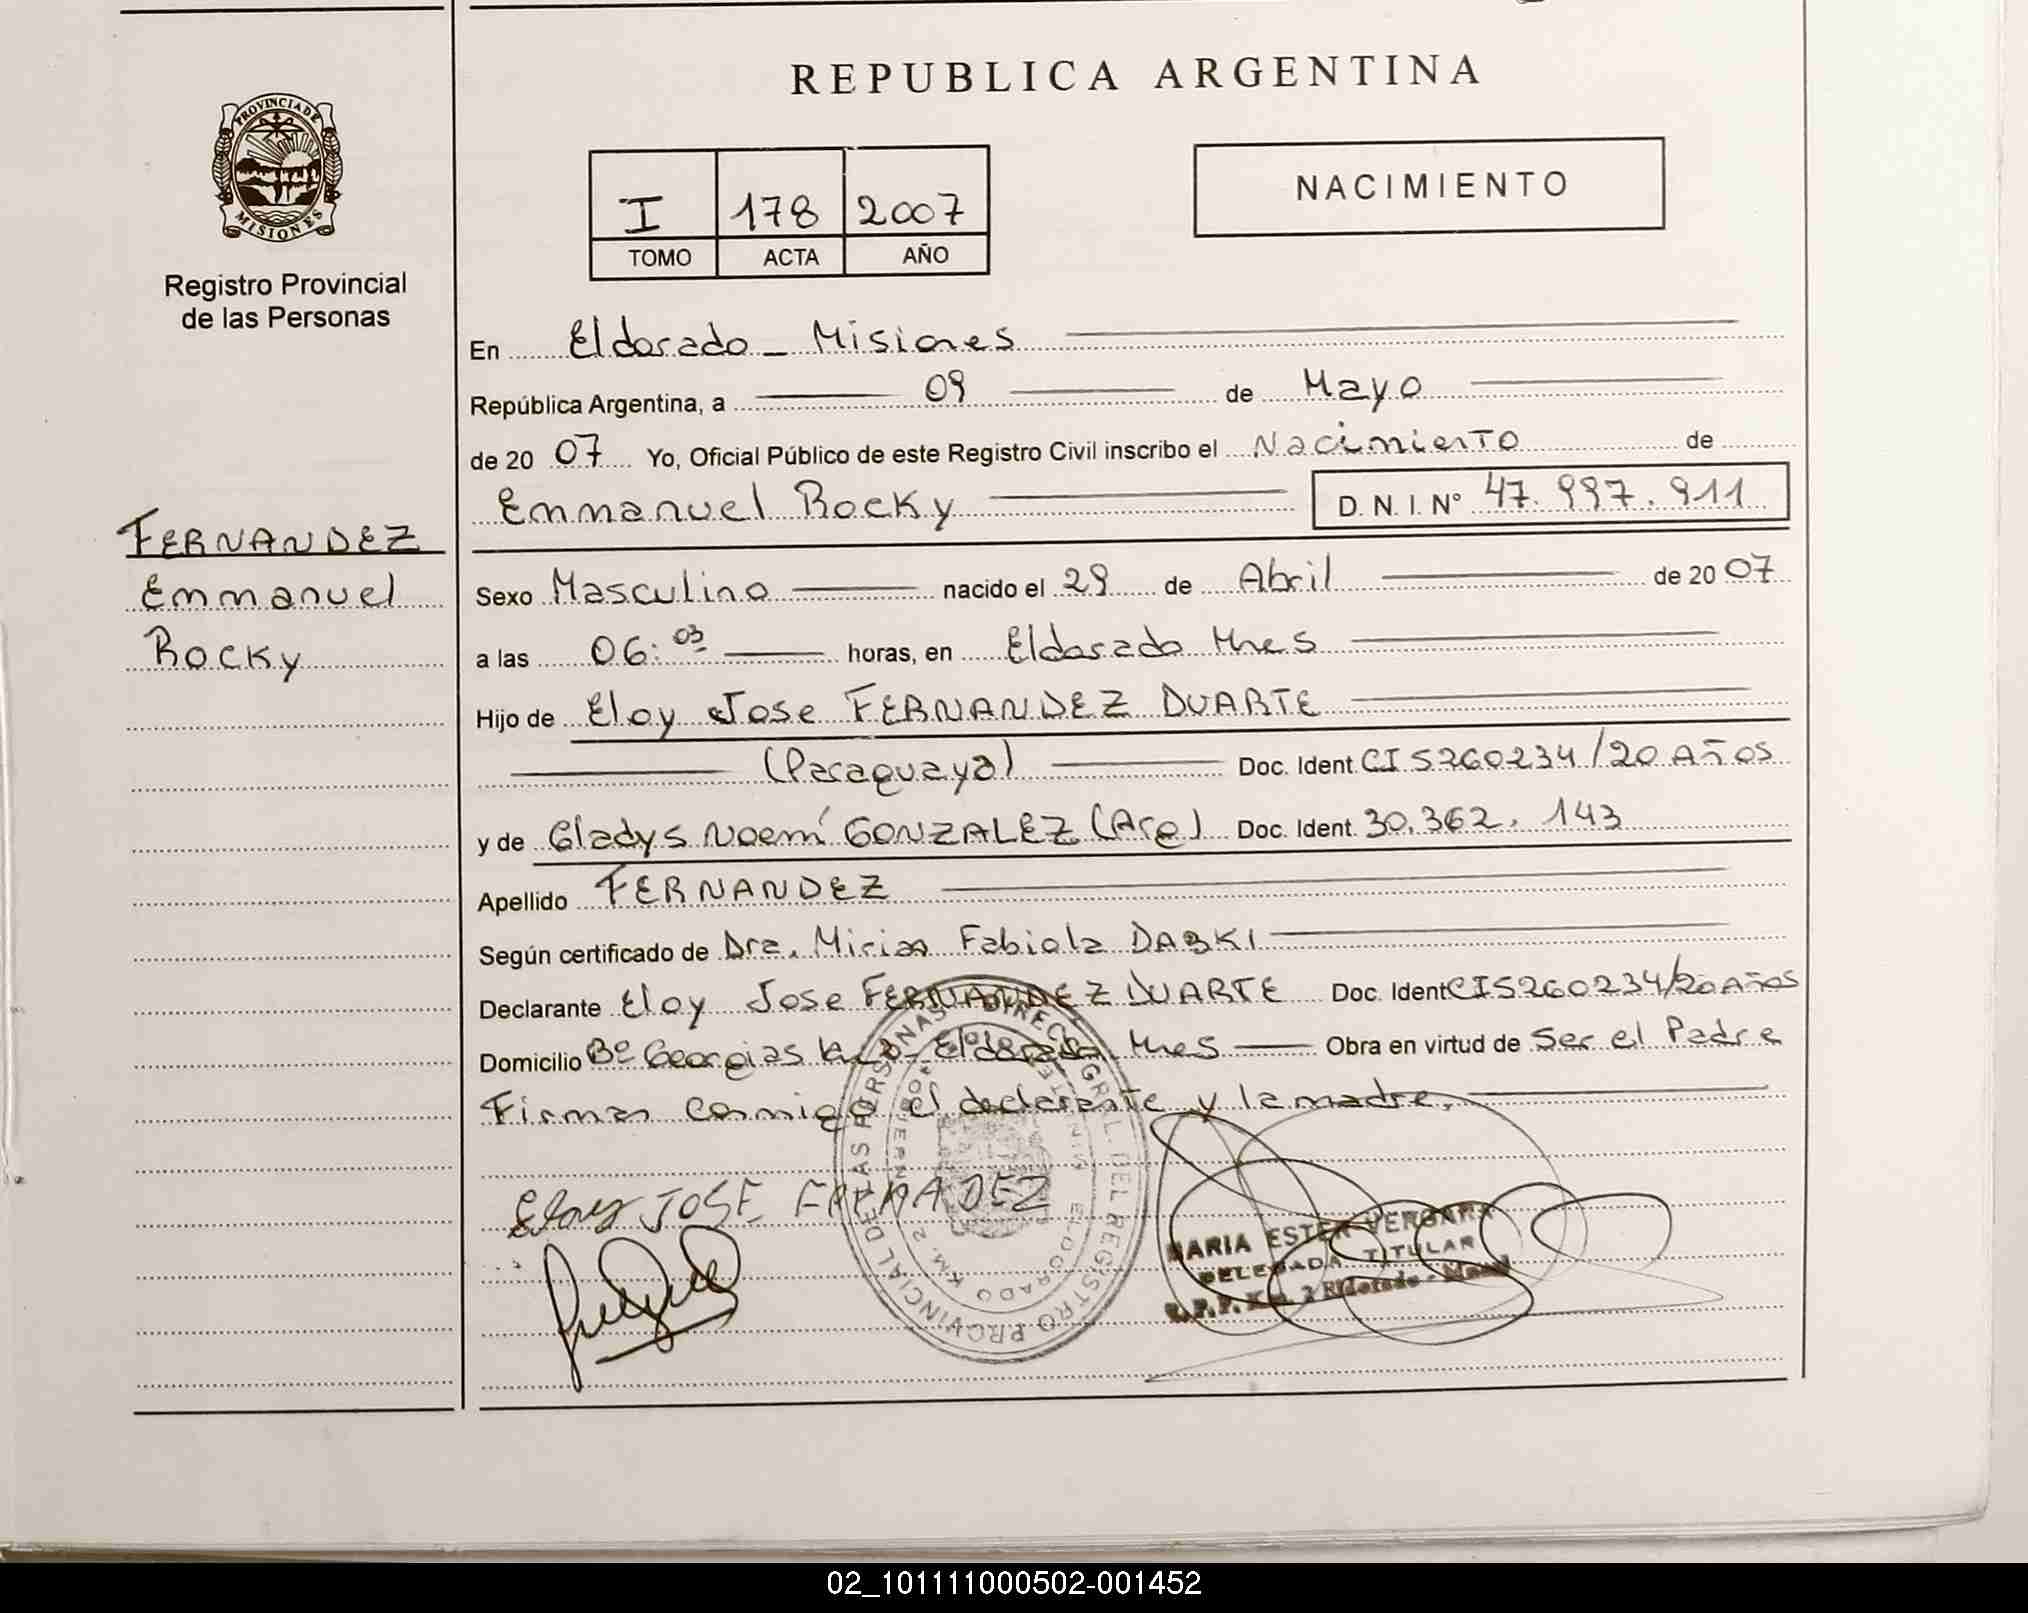 REPUBLICA ARGENTINA
PROVINCIA DE MISIONES
Registro Provincial
de las Personas
I 178 2007
TOMO ACTA AÑO
NACIMIENTO
En Eldorado - Misiones
República Argentina, a 09 de Mayo
de 2007 Yo, Oficial Público de este Registro Civil inscribo el Nacimiento de
Emmanuel Rocky D. N. I. Nº 47.997.911
FERNANDEZ
Emmanuel
Rocky
Sexo Masculino nacido el 29 de Abril de 2007
a las 06:03 horas, en Eldorado Mnes
Hijo de Eloy Jose FERNANDEZ DUARTE
(Paraguaya) Doc. Ident. CI 5260234/20 Años
y de Gladys Noemí GONZALEZ (Arg) Doc. Ident. 30.362.143
Apellido FERNANDEZ
Según certificado de Dra. Miriam Fabiola DASKI
Declarante Eloy Jose FERNANDEZ DUARTE Doc. Ident CI5260234/20 Años
Domicilio Bº Georgias Eldorado Mnes Obra en virtud de Ser el Padre
Firman conmigo el declarante y la madre.
Eloy JOSE FERNADEZ
MARIA ESTER VERGARA
DELEGADA TITULAR
R.P.P. Km. 2 Eldorado - Mnes
DIREC. GRAL. DEL REGISTRO PROVINCIAL DE LAS PERSONAS
ELDORADO KM. 2
02_101111000502-001452